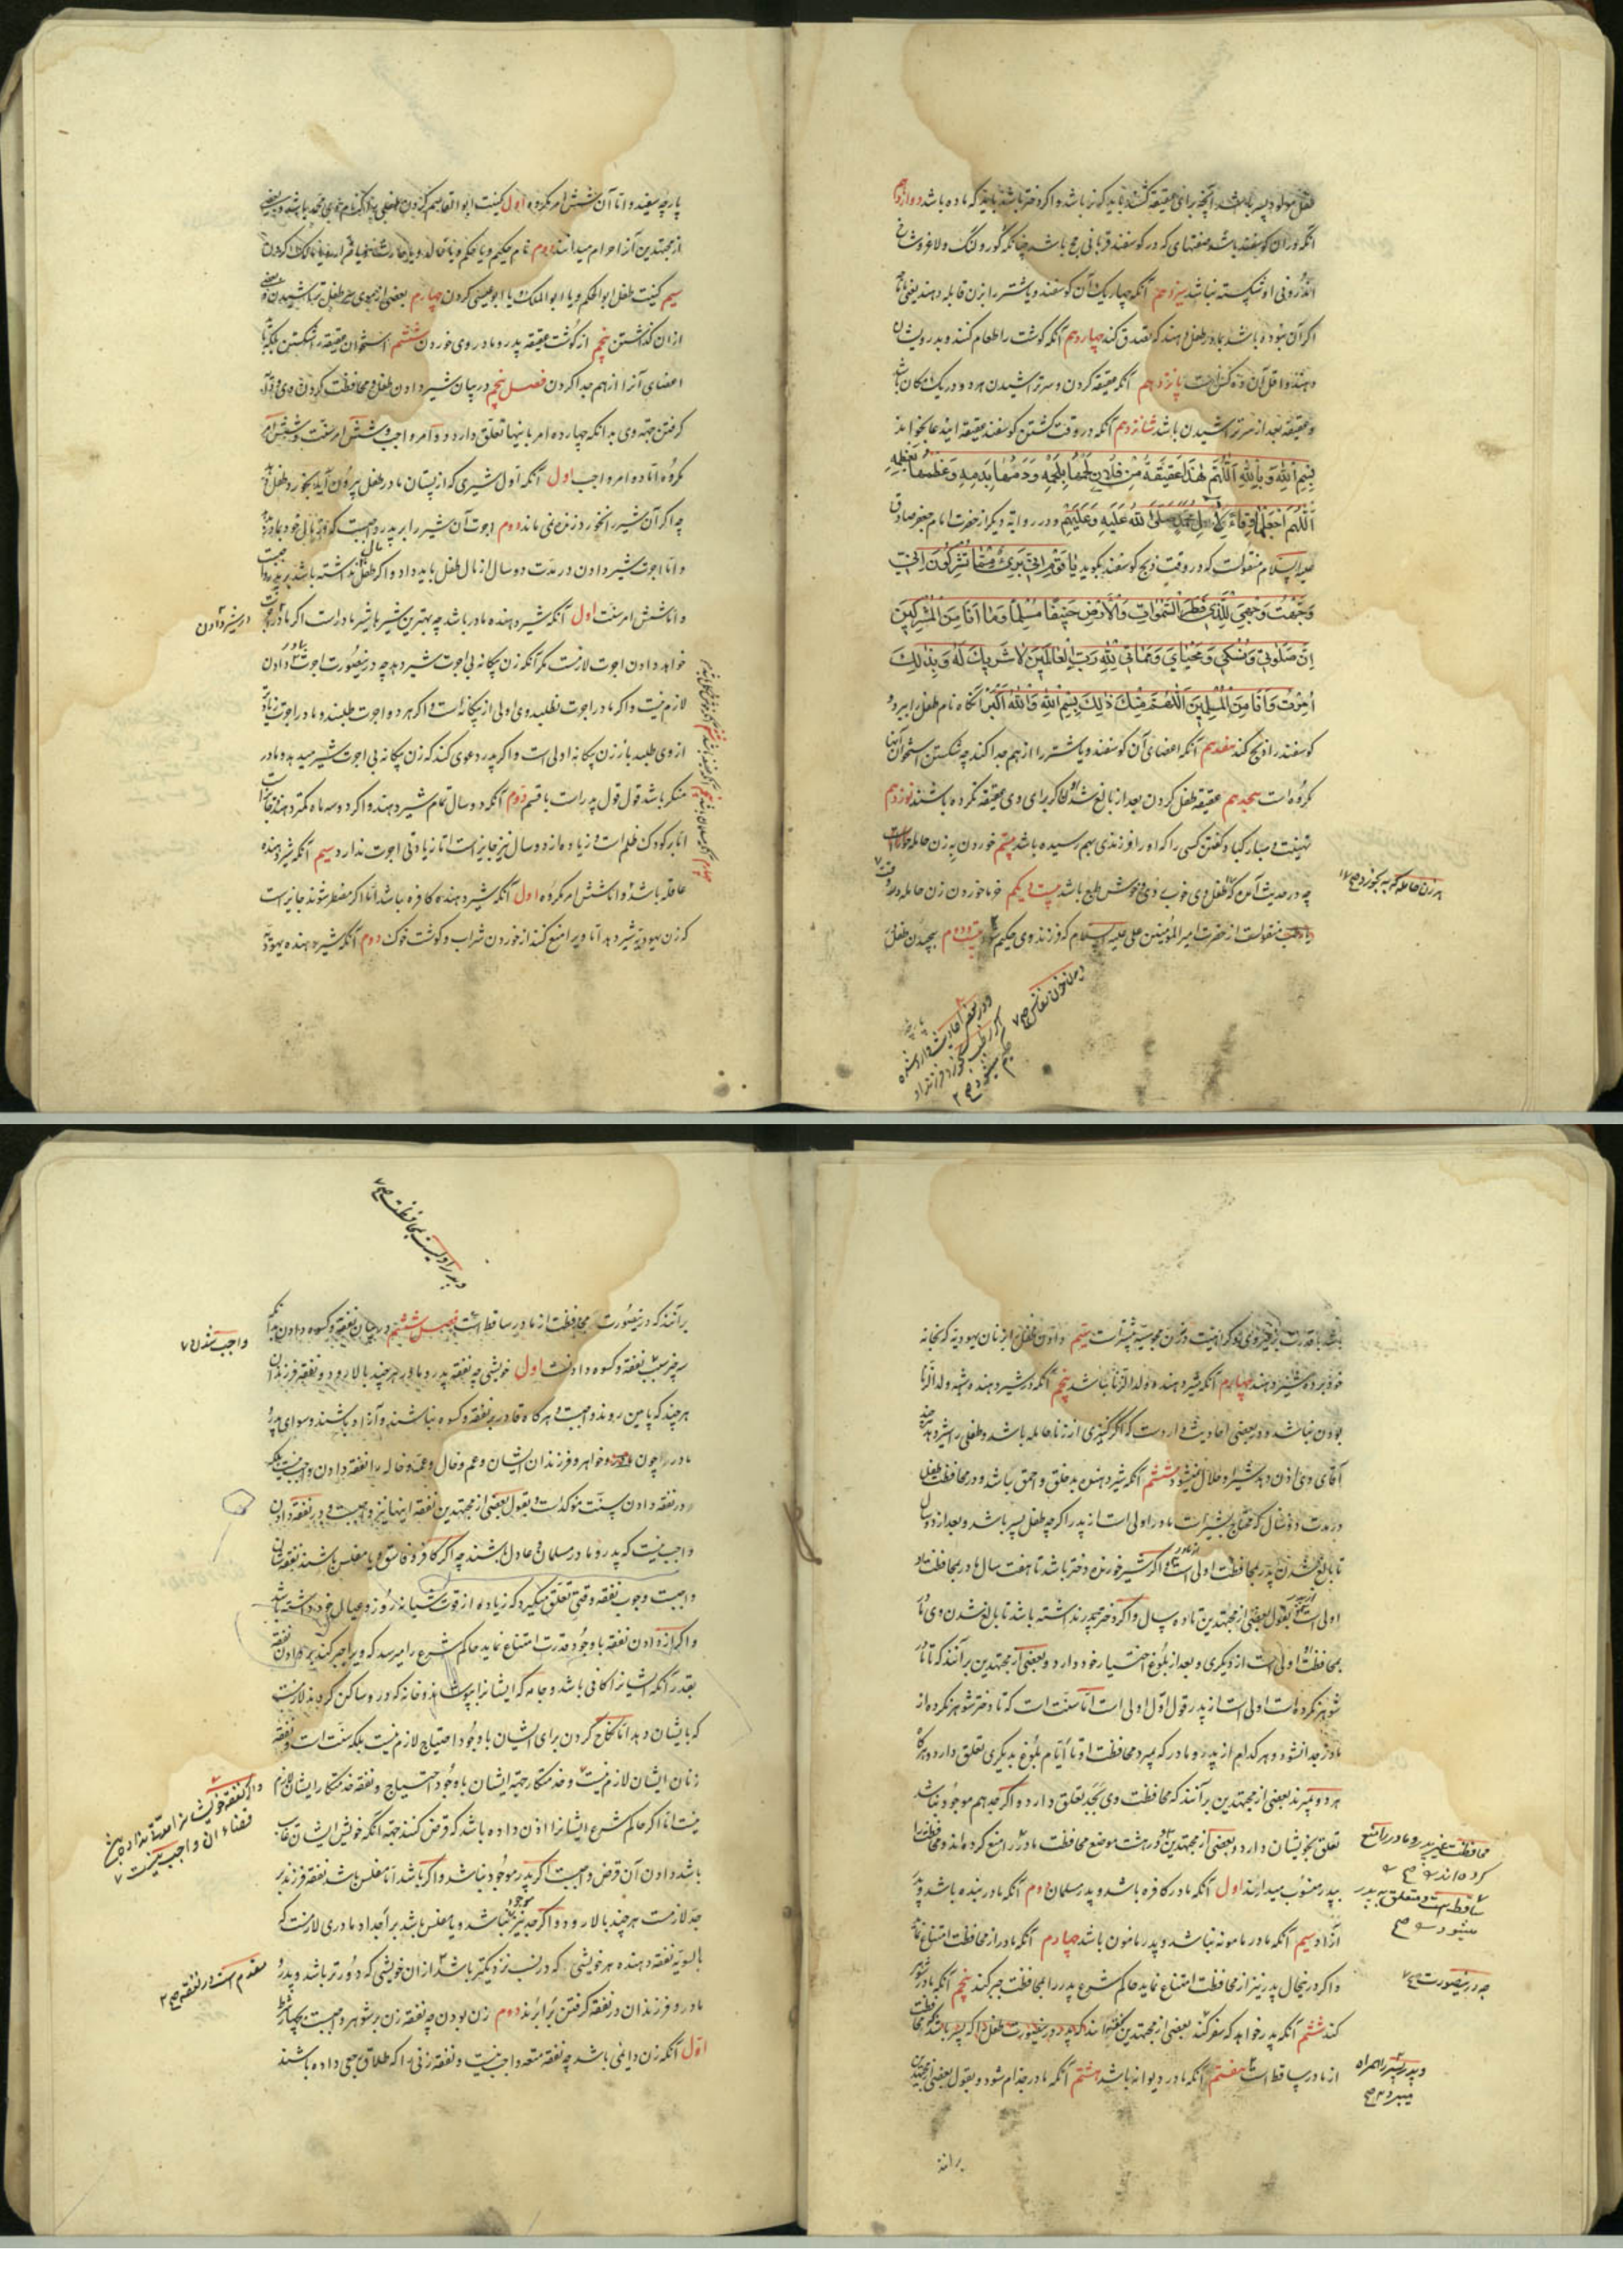 طفل مولود پسر باشد آنچه برای عقیقه کشند باید که نر باشد و اگر دختر باشد باید که ماده باشد دوازدهم
آنکه در آن گوسفند باشد صفتهای که در گوسفند قربانی حج باشد چنانکه کور و لنگ و لاغر و شاخ
اندرونی او شکسته نباشد سیزدهم آنکه چهار یک آن گوسفند و یا شتر را بزن قابله دهند
اگر آن نبوده باشد بمادر طفل دهند که تصدق کند چهاردهم آنکه گوشت را طعام کنند و بدرویشان
دهند و اقل آن ده کس است پانزدهم آنکه عقیقه کردن و سر تراشیدن هر دو در یک مکان باشد
و عقیقه بعد از سر تراشیدن باشد شانزدهم آنکه در وقت کشتن گوسفند عقیقه این دعا بخواند
بِسْمِ اللهِ وَبِاللهِ اَللّهُمَّ هٰذِهِ عَقیقَةٌ مِنْ فُلانٍ لَحْمُها بِلَحْمِهِ وَدَمُها بِدَمِهِ وَعَظْمُها بِعَظْمِهِ
اَللّهُمَّ اجْعَلْها وِقاءً لِآلِ مُحَمَّدٍ صَلَّی اللهُ عَلَیْهِ وَعَلَیْهِمْ و در روایة دیگر از حضرت امام جعفر صادق
علیه السلام منقولست که در وقت ذبح گوسفند بگوید یا قَوْمِ اِنّی بَریءٌ مِمّا تُشْرِکُونَ اِنّی
وَجَّهْتُ وَجْهِیَ لِلَّذی فَطَرَ السَّمٰواتِ وَالْاَرْضَ حَنیفًا مُسْلِمًا وَما اَنَا مِنَ الْمُشْرِکینَ
اِنَّ صَلٰوتی وَنُسُکی وَمَحْیایَ وَمَماتی لِلّهِ رَبِّ الْعالَمینَ لا شَریکَ لَهُ وَبِذٰلِکَ
اُمِرْتُ وَاَنَا مِنَ الْمُسْلِمینَ اَللّهُمَّ مِنْکَ وَلَکَ بِسْمِ اللهِ وَاللهُ اَکْبَرُ آنگاه نام طفل را ببرد و
گوسفند را ذبح کند هفدهم آنکه اعضای آن گوسفند و یا شتر را از هم جدا کنند چه شکستن استخوان آنها
مکروه است هجدهم عقیقه طفل کردن بعد از بالغ شدن او اگر برای وی عقیقه نکرده باشند نوزدهم
تهنیت و مبارکباد گفتن کسی را که او را فرزندی بهم رسیده باشد بیستم خوردن به زن حامله را
چه در حدیث آمده که طفل وی خوب روی و خوش طبع باشد بیست و یکم خرما خوردن زن حامله در وقت
منقولست از حضرت امیر المؤمنین علی علیه السلام که فرزند وی حکیم شود بیست و دوم پیچیدن طفل در
به زن حامله که به بخورد صح
در بعضی احادیث وارد شده
که اگر رطب بخورد فرزند او
حلیم میشود صح
در زمان خون نفاس صح
پارچه سفید و اما آن شش امر مکروه اول کنیت ابو القاسم کردن طفلی را که نام وی محمد باشد و بعضی
از مجتهدین آنرا حرام میدانند دوم نام حکیم و یا حکم و یا خالد و یا حارث و یا ضرار و یا مالک کردن
سیم کنیت طفل ابو الحکم و یا ابو الملک و یا ابو عیسی کردن چهارم بعضی از موی سر طفل تراشیدن و بعضی
از آن گذاشتن پنجم از گوشت عقیقه پدر و مادر وی خوردن ششم استخوان عقیقه را شکستن بلکه باید
اعضای آنرا از هم جدا کردن فصل پنجم در بیان شیر دادن طفل و محافظت کردن وی و دایه
گرفتن جهة وی بدانکه چهارده امر باینها تعلق دارد دو امر واجب و شش امر سنت و شش امر
مکروه اما دو امر واجب اول آنکه اول شیری که از پستان مادر طفل بیرون آید بخورد طفل دهد
چه اگر آن شیر را نخورد زنده نمی ماند دوم اجرت آن شیر را بر پدر واجب
و اما اجرت شیر دادن در مدت دو سال از مال طفل باید داد و اگر طفل مال نداشته باشد بر پدر واجب است
و اما شش امر سنت اول آنکه شیر دهنده مادر باشد چه بهترین شیرها شیر مادر است اگر مادر اجرت
خواهد دادن اجرت لازمست مگر آنکه زن بیگانه بی اجرت شیر دهد چه در اینصورت اجرت بمادر دادن
لازم نیست و اگر مادر اجرت نطلبد وی اولی از بیگانه است و اگر هر دو اجرت طلبند و مادر اجرت زیاده
از وی طلبد باز زن بیگانه اولی است و اگر پدر دعوی کند که زن بیگانه بی اجرت شیر میدهد و مادر
منکر باشد قول قول پدر است با قسم دوم آنکه دو سال تمام شیر دهند و اگر دو سه ماه کمتر دهند جایز است
اما بر کودک ظلم است و زیاده از دو سال نیز جایز است اما زیادتی اجرت ندارد سیم آنکه شیر دهنده
عاقله باشد و اما شش امر مکروه اول آنکه شیر دهنده کافره باشد اما اگر مضطر شوند جایز است
که زن یهودیه شیر دهد اما ویرا منع کنند از خوردن شراب و گوشت خوک دوم آنکه شیر دهنده یهودیه
در شیر دادن
باشد با قدرت بر غیر وی سیم دادن طفل را بزنان یهودیه که بخانه
خود برده شیر دهند چهارم آنکه شیر دهنده ولد الزنا نباشد پنجم آنکه در شیر دهنده ولد الزنا
بودن نباشد و در بعضی احادیث وارد است که اگر کنیزی از زنا حامله باشد و طفلی را شیر دهد
آقای وی اذن دهد شیر او حلال میشود ششم آنکه شیر دهنده بد خلق و احمق نباشد و در محافظت طفل
در مدت دو سال که محتاج بشیر است مادر اولی است از پدر اگر چه طفل پسر باشد و بعد از دو سال
تا بالغ شدن پدر بمحافظت اولی است از مادر و اگر شیر خورنده دختر باشد تا هفت سال مادر بمحافظت او
اولی است و بقول بعضی از مجتهدین تا نه سال و اگر دختر پدر نداشته باشد تا بالغ شدن وی مادر
بمحافظت اولی است از دیگری و بعد از بلوغ اختیار خود دارد و بعضی از مجتهدین برآنند که تا مادر
شوهر نکرده است اولی است از پدر قول اول اولی است اما سنت است که تا دختر شوهر نکرده از
مادر جدا نشود و هر کدام از پدر و مادر که بمیرد محافظت او تا ایام بلوغ بدیگری تعلق دارد و هرگاه
هر دو بمیرند بعضی از مجتهدین برآنند که محافظت وی بجد تعلق دارد و اگر جد هم موجود نباشد
تعلق بخویشان دارد و بعضی از مجتهدین و در هشت موضع محافظت مادر را منع کرده اند و محافظت را
بپدر منسوب میدارند اول آنکه مادر کافره باشد و پدر مسلمان دوم آنکه مادر بنده باشد و پدر
آزاد سیم آنکه مادر مامونه نباشد و پدر مامون باشد چهارم آنکه مادر از محافظت امتناع نماید
و اگر در اینحال پدر نیز از محافظت امتناع نماید حاکم شرع پدر را بمحافظت جبر کند پنجم آنکه مادر شوهر
کند ششم آنکه پدر خواهد که سفر کند بعضی از مجتهدین گفته اند که در اینصورت طفل را اگر پسر باشد محافظت
از مادر ساقط است هفتم آنکه مادر دیوانه باشد هشتم آنکه مادر جذام شود و بقول بعضی مجتهدین
برانند
محافظت غیر پدر و مادر را منع
کرده اند صح
ساقط است و متعلق به پدر
میشود صح
چه در اینصورت صح
و پدر پسر را همراه
میبرد صح
و پدر را اولیست بمحافظت صح
برآنند که در اینصورت محافظت از مادر ساقط است فصل ششم در بیان نفقه و کسوه دادن بدانکه
سه چیز سبب نفقه و کسوه دادنست اول خویشی چه نفقه پدر و مادر هر چند بالا رود و نفقه فرزندان
هر چند که پایین روند واجبست هر گاه قادر بر نفقه و کسوه نباشند و آزاد باشند و سوای پدر و
مادر را چون خواهر و فرزندان ایشان و عم و خال و عمه و خاله را نفقه دادن واجب نیست بلکه
در نفقه دادن سنت مؤکد است و بقول بعضی از مجتهدین نفقه اینها نیز واجبست و در نفقه دادن
واجب نیست که پدر و مادر مسلمان و عادل باشند چه اگر کافر و فاسق و یا مفلس باشند نفقه ایشان
واجبست و وجوب نفقه وقتی تعلق میگیرد که زیاده از قوت شبانه روز و عیال خود داشته باشد
و اگر از دادن نفقه با وجود قدرت امتناع نماید حاکم شرع را میرسد که ویرا جبر کند بر دادن نفقه
بقدر آنکه ایشانرا کافی باشد و جامه که ایشانرا بپوشاند و خانه که در او ساکن گردند لازمست
که بایشان دهد اما نکاح کردن برای ایشان با وجود احتیاج لازم نیست بلکه سنت است و نفقه
زنان ایشان لازم نیست و خدمتکار جهة ایشان با وجود احتیاج و نفقه خدمتکار ایشان لازم
نیست اما اگر حاکم شرع ایشانرا اذن داده باشد که قرض کنند جهة آنکه خویش ایشان غایب
باشد دادن آن قرض واجبست اگر پدر موجود نباشد و اگر باشد اما مفلس باشد نفقه فرزند بر
جد لازمست هر چند بالا رود و اگر جد نیز موجود نباشد و یا مفلس باشد بر اجداد مادری لازمست که
بالسویه نفقه دهند و هر خویشی که در نسب نزدیکتر باشد از آن خویشی که دورتر باشد و پدر و
مادر و فرزندان در نفقه گرفتن برابرند دوم زن بودن چه نفقه زن بر شوهر واجبست بچهار شرط
اول آنکه زن دایمی باشد چه نفقه متعه واجب نیست و نفقه زنی را که طلاق رجعی داده باشند
واجب شدن
و اگر نفقه خویشانرا مدتی نداده باشد
قضاء آن واجب نیست
مقدم است در نفقه صح